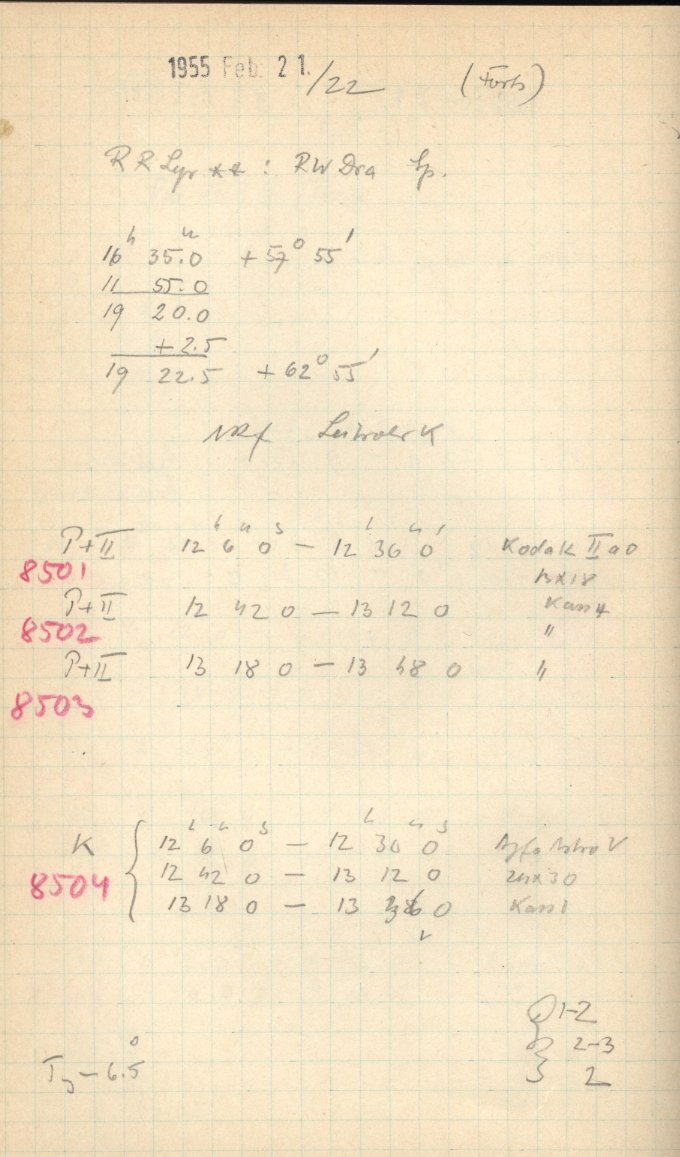 1955 Feb. 21./22 (Forts)
RR Lyr : RW Dra Sp.
16h 35.0m +57° 55'
11 55.0
19 20.0
+2.5
19 22.5 +62° 55'
P+II 12h 6m 0s — 12h 36m 0s Kodak II a O
8501 13x18
P+II 12 42 0 — 13 12 0 Kass 4
8502 "
P+II 13 18 0 — 13 48 0 "
8503
K 12h 6m 0s — 12h 36m 0s Agfa Astro V
8504 12 42 0 — 13 12 0 24x30
13 18 0 — 13 0 Kass 1
1-2
2-3
T₃ — 6.5° 3 2